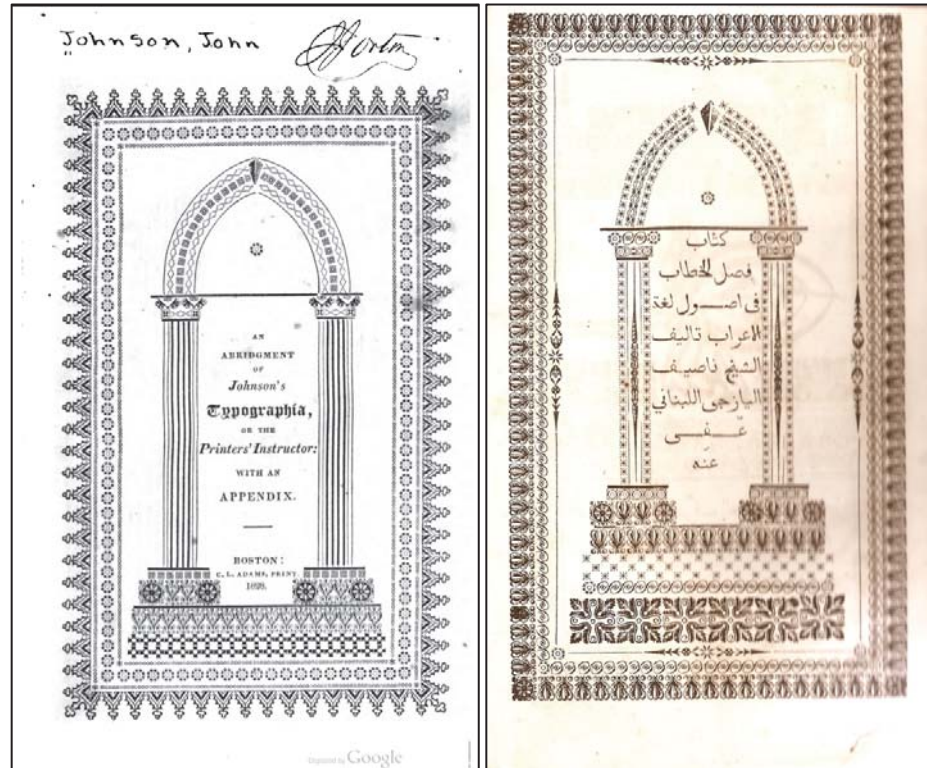 Johnson, John
AN
ABRIDGMENT
OF
Johnson's
Typographia,
OR THE
Printers' Instructor:
WITH AN
APPENDIX.
BOSTON:
C. L. ADAMS, PRINT.
1828.
Digitized by Google
كتاب
فصل الخطاب
فى اصــول لغة
الاعراب تاليف
الشيخ ناصيف
اليازجى اللبناني
عُـفِـى
عنه